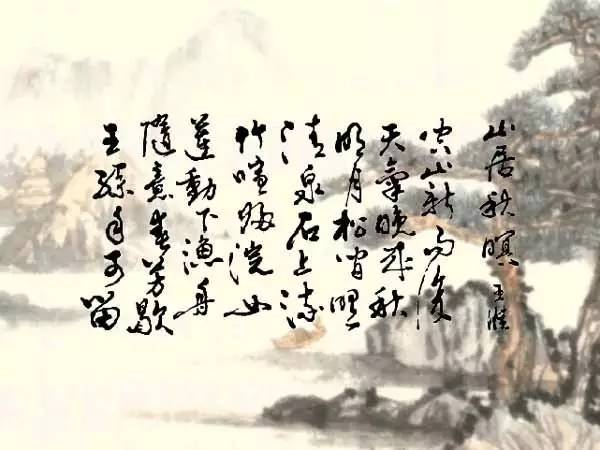 山居秋暝 王維
空山新雨後
天氣晚來秋
明月松間照
清泉石上流
竹喧歸浣女
蓮動下漁舟
隨意春芳歇
王孫自可留